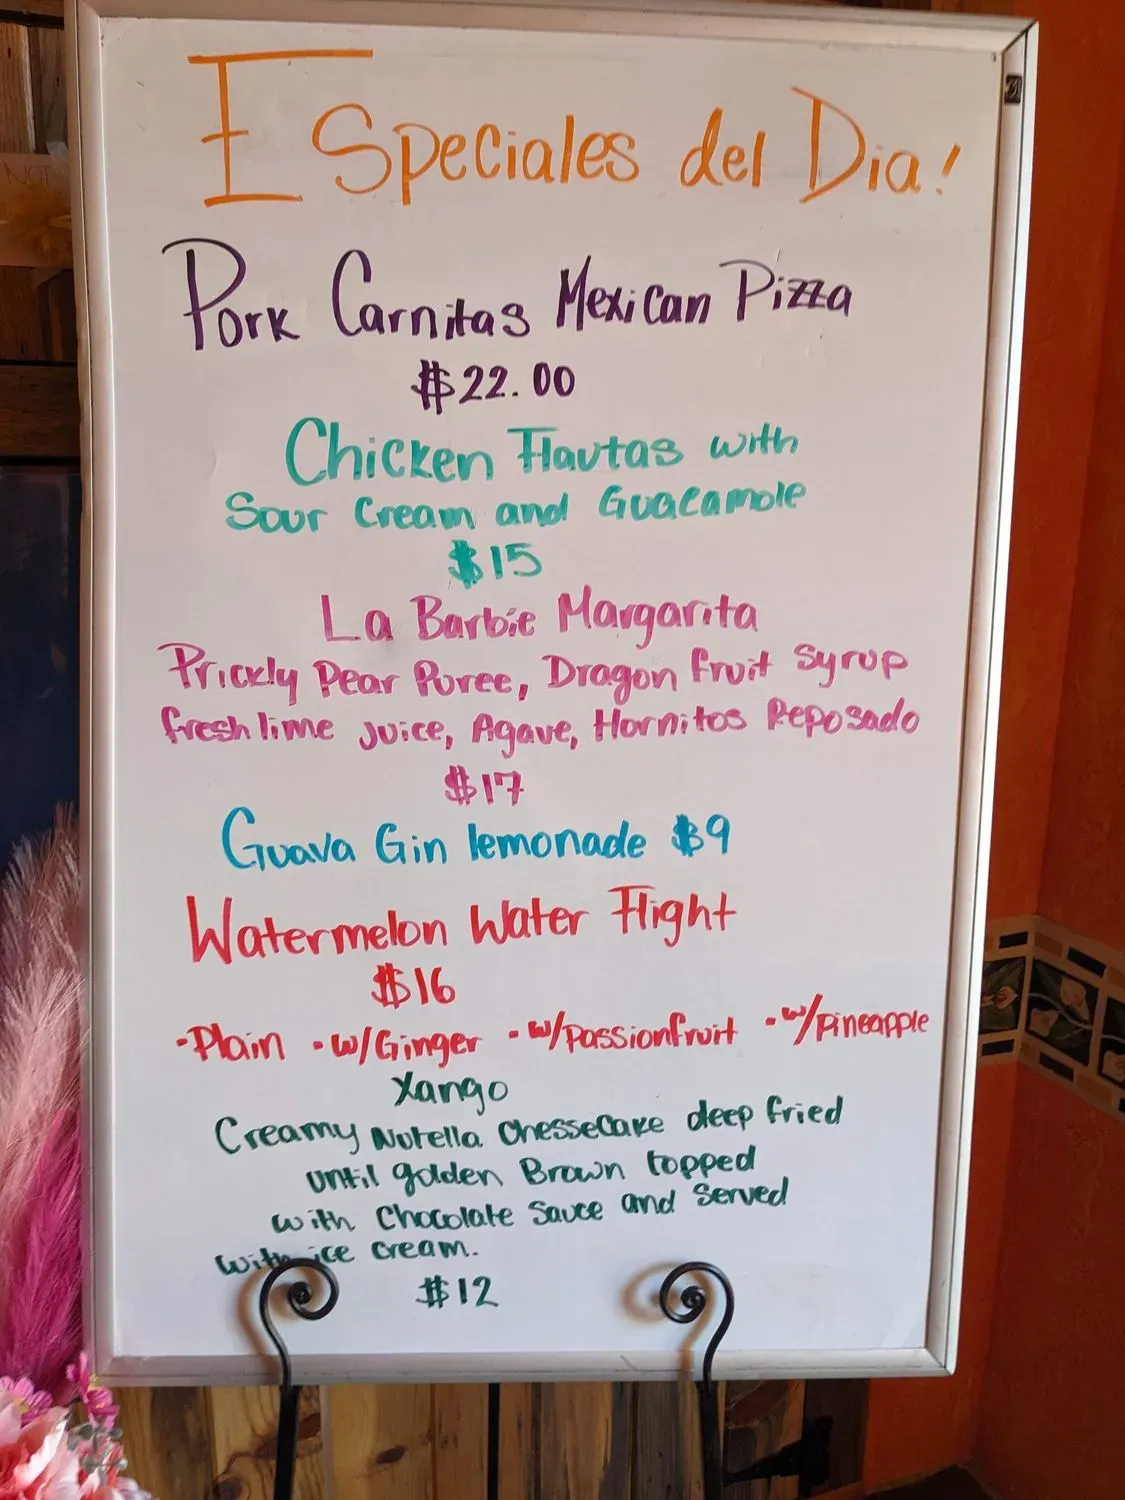 Especiales del Dia!
Pork Carnitas Mexican Pizza
$22.00
Chicken Flautas with
Sour Cream and Guacamole
$15
La Barbie Margarita
Prickly Pear Puree, Dragon fruit syrup
fresh lime juice, Agave, Hornitos Reposado
$17
Guava Gin lemonade $9
Watermelon Water Flight
$16
•Plain •w/Ginger •w/Passionfruit •w/Pineapple
Xango
Creamy Nutella Chessecake deep fried
until golden Brown topped
with Chocolate Sauce and Served
with ice cream.
$12